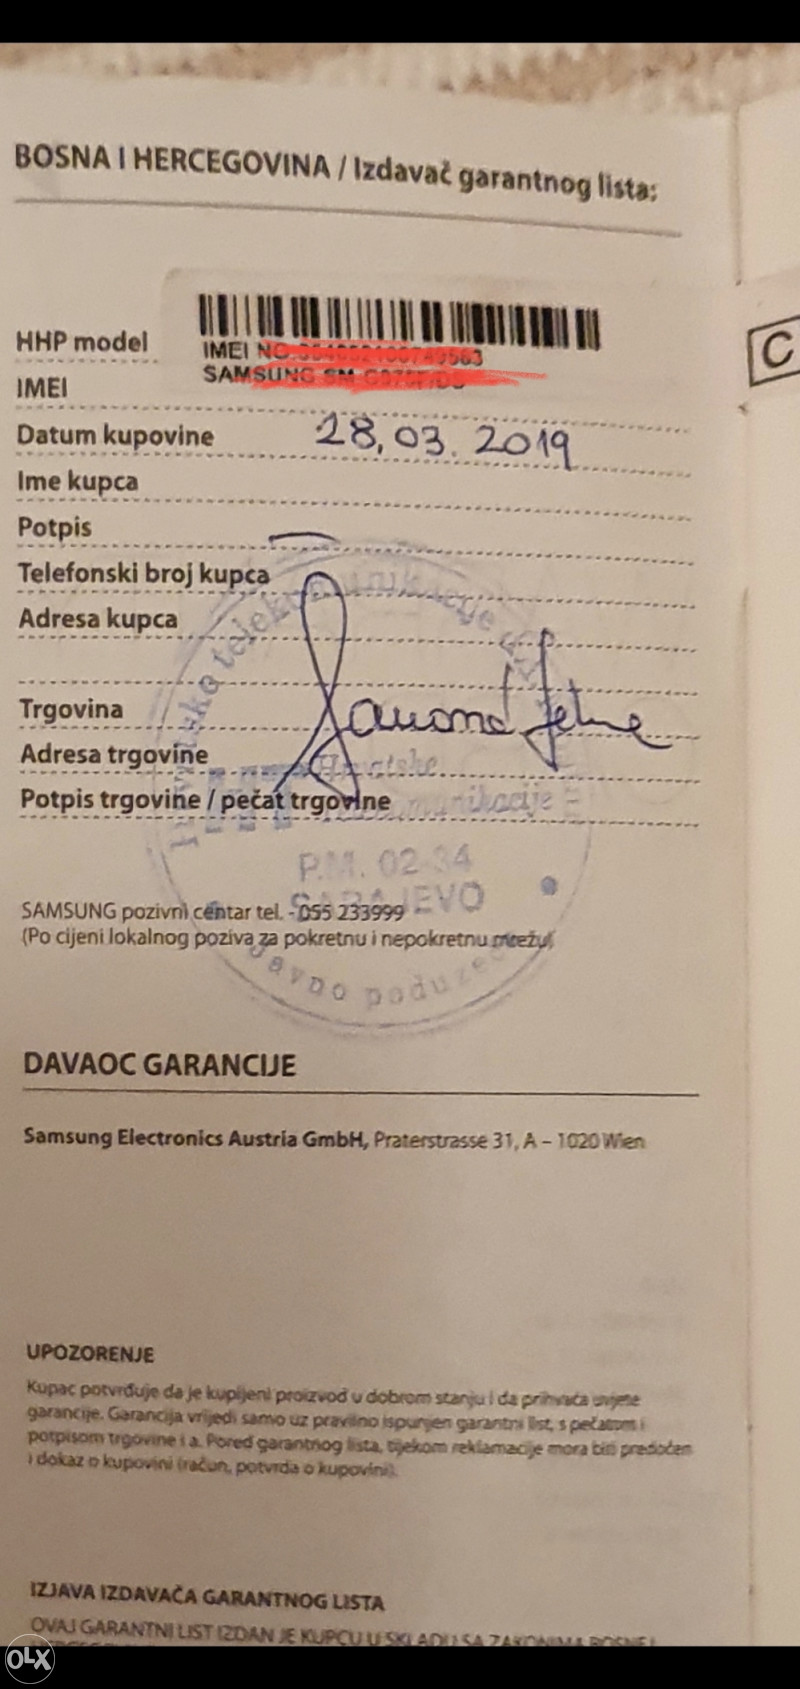 BOSNA I HERCEGOVINA / Izdavač garantnog lista:
C
HHP model
IMEI NO.
SAMSUNG SM
IMEI
Datum kupovine 28.03.2019
Ime kupca
Potpis
Telefonski broj kupca
Adresa kupca
Trgovina
Adresa trgovine
Hrvatske
Potpis trgovine / pečat trgovine
telekomunikacije
P.M. 02-34
SARAJEVO
SAMSUNG pozivni centar tel. - 055 233999
(Po cijeni lokalnog poziva za pokretnu i nepokretnu mrežu)
Javno poduzeće
DAVAOC GARANCIJE
Samsung Electronics Austria GmbH, Praterstrasse 31, A – 1020 Wien
UPOZORENJE
Kupac potvrđuje da je kupljeni proizvod u dobrom stanju i da prihvaća uvjete
garancije. Garancija vrijedi samo uz pravilno ispunjen garantni list, s pečatom i
potpisom trgovine i a. Pored garantnog lista, tijekom reklamacije mora biti predočen
i dokaz o kupovini (račun, potvrda o kupovini).
IZJAVA IZDAVAČA GARANTNOG LISTA
OVAJ GARANTNI LIST IZDAN JE KUPCU U SKLADU SA ZAKONIMA BOSNE I
OLX